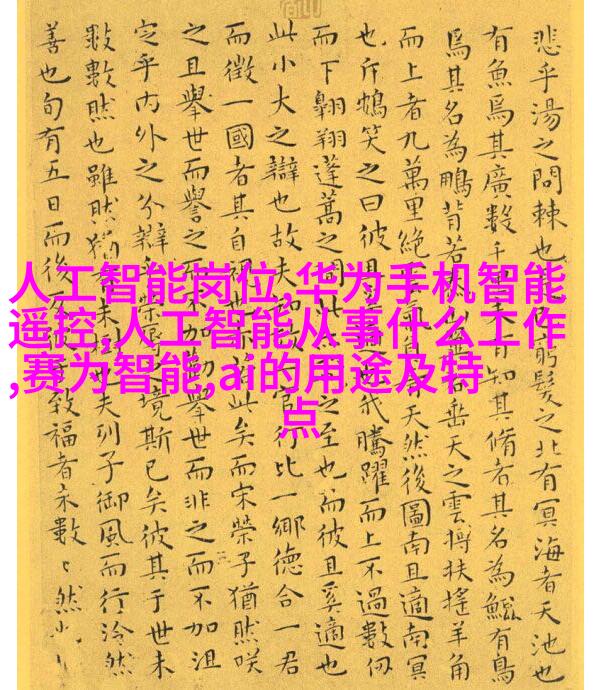 人工智能岗位,华为手机智能
遥控,人工智能从事什么工作
,赛为智能,ai的用途及特
点
悲乎湯之問棘也窮髮之北有冥海者天池也
有魚焉其廣數千里有知其脩者其名為鯤有鳥
焉其名為鵬背若垂天之雲摶扶搖羊角
而上者九萬里絕氣負天然後圖南且適南冥
也斥鴳笑之曰彼且我騰躍而上不過數仞
而下翱翔蓬蒿之間此之至也而彼且奚適也
此小大之辯也故夫知一官行比一鄉德合一君
而徵一國者其自視此矣而宋榮子猶然咲
之且舉世而譽之而加舉世而非之而不加沮
定乎內外之分辯榮辱之境斯已矣彼其于世未
數數然也雖然猶未也夫列子御風而行泠然
善也旬有五日而後反彼致福者未數〻然也